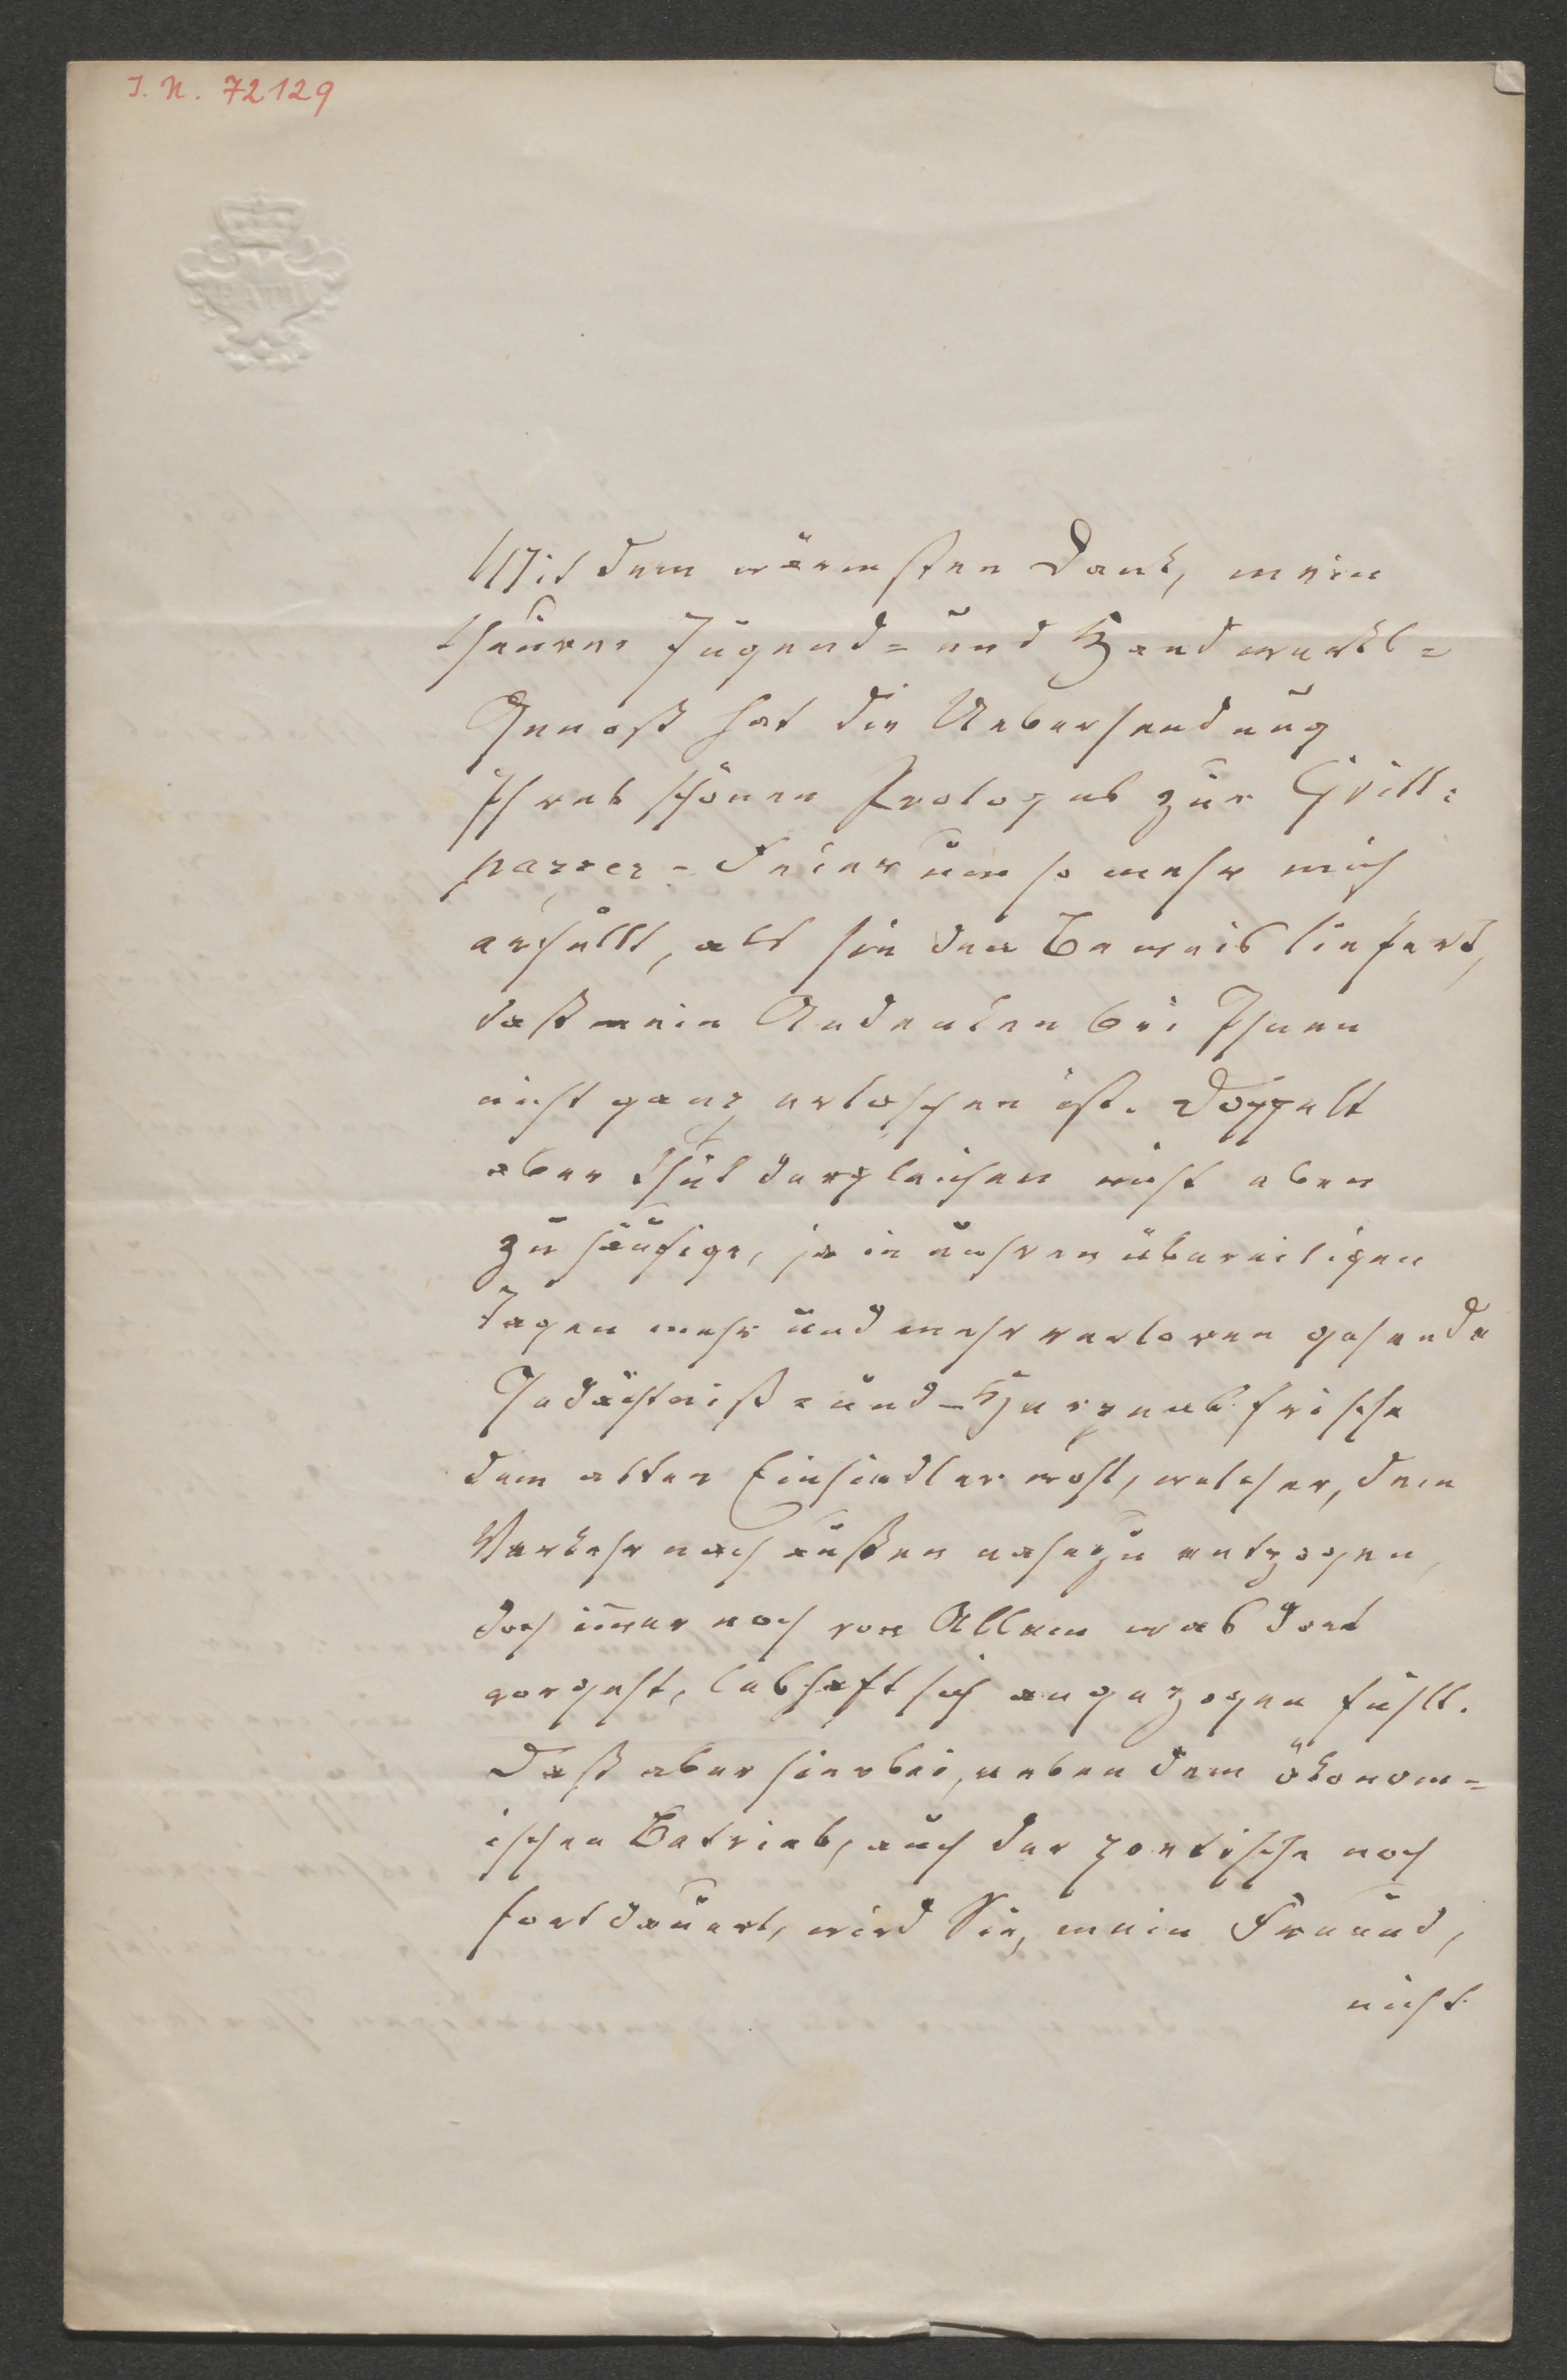 I. N. 72129
BATH
Mit dem wärmsten Dank, mein
theurer Jugend= und Handwerks=
Genoß hat die Uebersendung
Ihres schönen Prologes zur Grill=
parzer-Feier um so mehr mich
erfüllt, als sie den Beweis liefert,
daß mein Andenken bei Ihnen
nicht ganz erloschen ist. Doppelt
aber thut dergleichen nicht eben
zu häufige, ja in unsren übereiligen
Tagen mehr und mehr verloren gehende
Gedächtniß= und -Herzensfrische
dem alten Einsiedler wohl, welcher, dem
Verkehr nach außen nahezu entzogen,
doch im̅er noch von Allem was dort
vorgeht, lebhaft sich angezogen fühlt.
Daß aber hierbei, neben dem ökonom=
ischen Betrieb, auch der poetische noch
fortdauert, wird Sie, mein Freund,
nicht